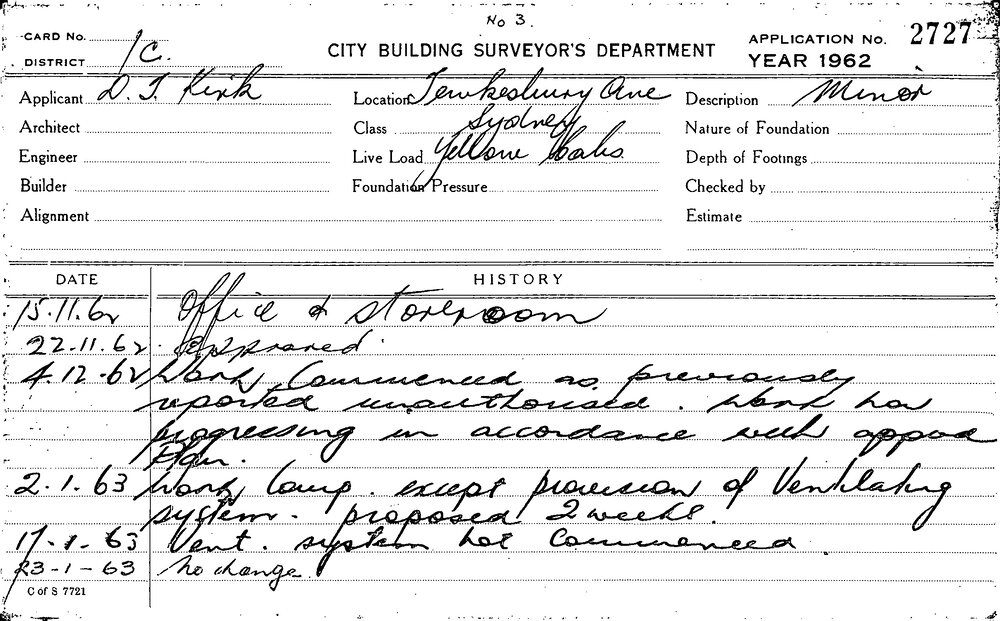 No 3.
CARD No.
DISTRICT 1C.
CITY BUILDING SURVEYOR'S DEPARTMENT
APPLICATION No. 2727
YEAR 1962
Applicant D. T. Kirk Location Tewkesbury Ave Description Minor
Architect Class Sydney Nature of Foundation
Engineer Live Load Yellow Cabs. Depth of Footings
Builder Foundation Pressure Checked by
Alignment Estimate
DATE HISTORY
15.11.62 Office & storeroom
22.11.62. Approved.
4.12.62 Work Commenced as previously
reported unauthorised. Work now
progressing in accordance with appvd
Plan.
2.1.63 Work Comp. except provision of Ventilating
system. proposed 2 weeks.
17.1.63 Vent. system not Commenced.
23-1-63 No change.
C of S 7721